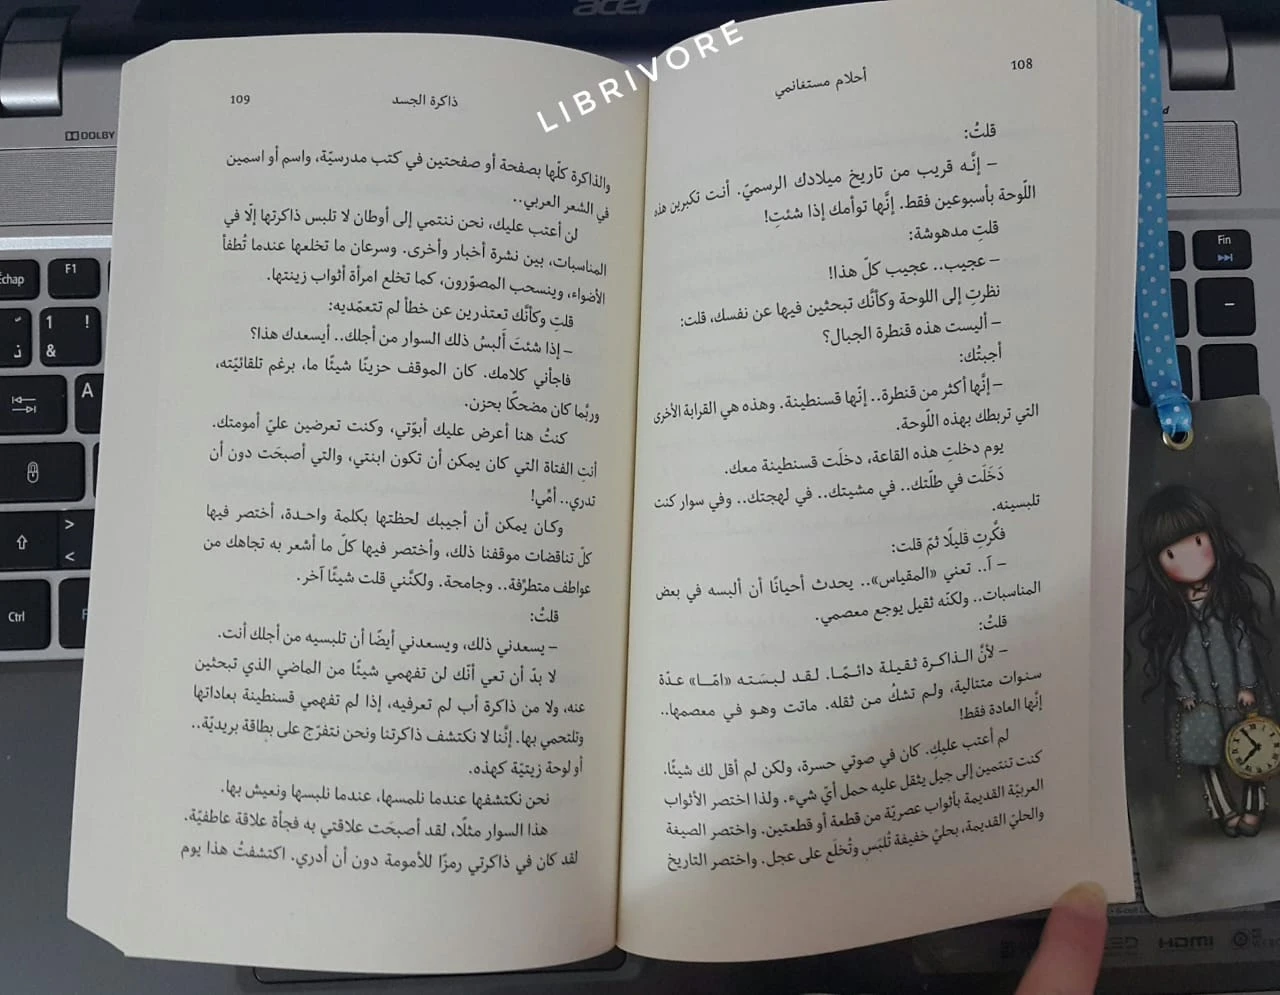 acer
LIBRIVORE
108
أحلام مستغانمي
قلتُ:
– إنَّه قريب من تاريخ ميلادك الرسميّ. أنت تكبرين هذه
اللّوحة بأسبوعين فقط. إنَّها توأمك إذا شئتِ!
قلتِ مدهوشة:
– عجيب.. عجيب كلّ هذا!
نظرتِ إلى اللوحة وكأنَّك تبحثين فيها عن نفسك، قلت:
– أليست هذه قنطرة الجبال؟
أجبتُك:
– إنَّها أكثر من قنطرة.. إنَّها قسنطينة. وهذه هي القرابة الأخرى
التي تربطك بهذه اللّوحة.
يوم دخلتِ هذه القاعة، دخلَت قسنطينة معك.
دَخَلَت في طلّتك.. في مشيتك.. في لهجتك.. وفي سوار كنت
تلبسينه.
فكَّرتِ قليلًا ثمّ قلت:
– آ.. تعني «المقياس».. يحدث أحيانًا أن ألبسه في بعض
المناسبات.. ولكنّه ثقيل يوجع معصمي.
قلتُ:
– لأنَّ الذاكرة ثقيلة دائمًا. لقد لبسَته «امّا» عدّة
سنوات متتالية، ولم تشكُ من ثقله. ماتت وهو في معصمها..
إنَّها العادة فقط!
لم أعتب عليكِ. كان في صوتي حسرة، ولكن لم أقل لك شيئًا.
كنت تنتمين إلى جيل يثقل عليه حمل أيّ شيء. ولذا اختصر الأثواب
العربيّة القديمة بأثواب عصريّة من قطعة أو قطعتين. واختصر الصيغة
والحليّ القديمة، بحليّ خفيفة تُلبَس وتُخلَع على عجل. واختصر التاريخ
ذاكرة الجسد
109
والذاكرة كلّها بصفحة أو صفحتين في كتب مدرسيّة، واسم أو اسمين
في الشعر العربي..
لن أعتب عليك، نحن ننتمي إلى أوطان لا تلبس ذاكرتها إلّا في
المناسبات، بين نشرة أخبار وأخرى. وسرعان ما تخلعها عندما تُطفأ
الأضواء، وينسحب المصوّرون، كما تخلع امرأة أثواب زينتها.
قلتِ وكأنَّك تعتذرين عن خطأ لم تتعمّديه:
– إذا شئتَ ألبسُ ذلك السوار من أجلك.. أيسعدك هذا؟
فاجأني كلامك. كان الموقف حزينًا شيئًا ما، برغم تلقائيّته،
وربُّما كان مضحكًا بحزن.
كنتُ هنا أعرض عليك أبوّتي، وكنت تعرضين عليّ أمومتك.
أنتِ الفتاة التي كان يمكن أن تكون ابنتي، والتي أصبحَت دون أن
تدري.. أمّي!
وكان يمكن أن أجيبك لحظتها بكلمة واحدة، أختصر فيها
كلّ تناقضات موقفنا ذلك، وأختصر فيها كلّ ما أشعر به تجاهك من
عواطف متطرّفة.. وجامحة. ولكنَّني قلت شيئًا آخر.
قلتُ:
– يسعدني ذلك، ويسعدني أيضًا أن تلبسيه من أجلك أنت.
لا بدّ أن تعي أنّك لن تفهمي شيئًا من الماضي الذي تبحثين
عنه، ولا من ذاكرة أب لم تعرفيه، إذا لم تفهمي قسنطينة بعاداتها
وتلتحمي بها. إنَّنا لا نكتشف ذاكرتنا ونحن نتفرّج على بطاقة بريديّة..
أو لوحة زيتيّة كهذه.
نحن نكتشفها عندما نلمسها، عندما نلبسها ونعيش بها.
هذا السوار مثلًا، لقد أصبحَت علاقتي به فجأة علاقة عاطفيّة.
لقد كان في ذاكرتي رمزًا للأمومة دون أن أدري. اكتشفتُ هذا يوم
DOLBY
F1
1
!
&
A
>
<
Ctrl
Fin
HDMI